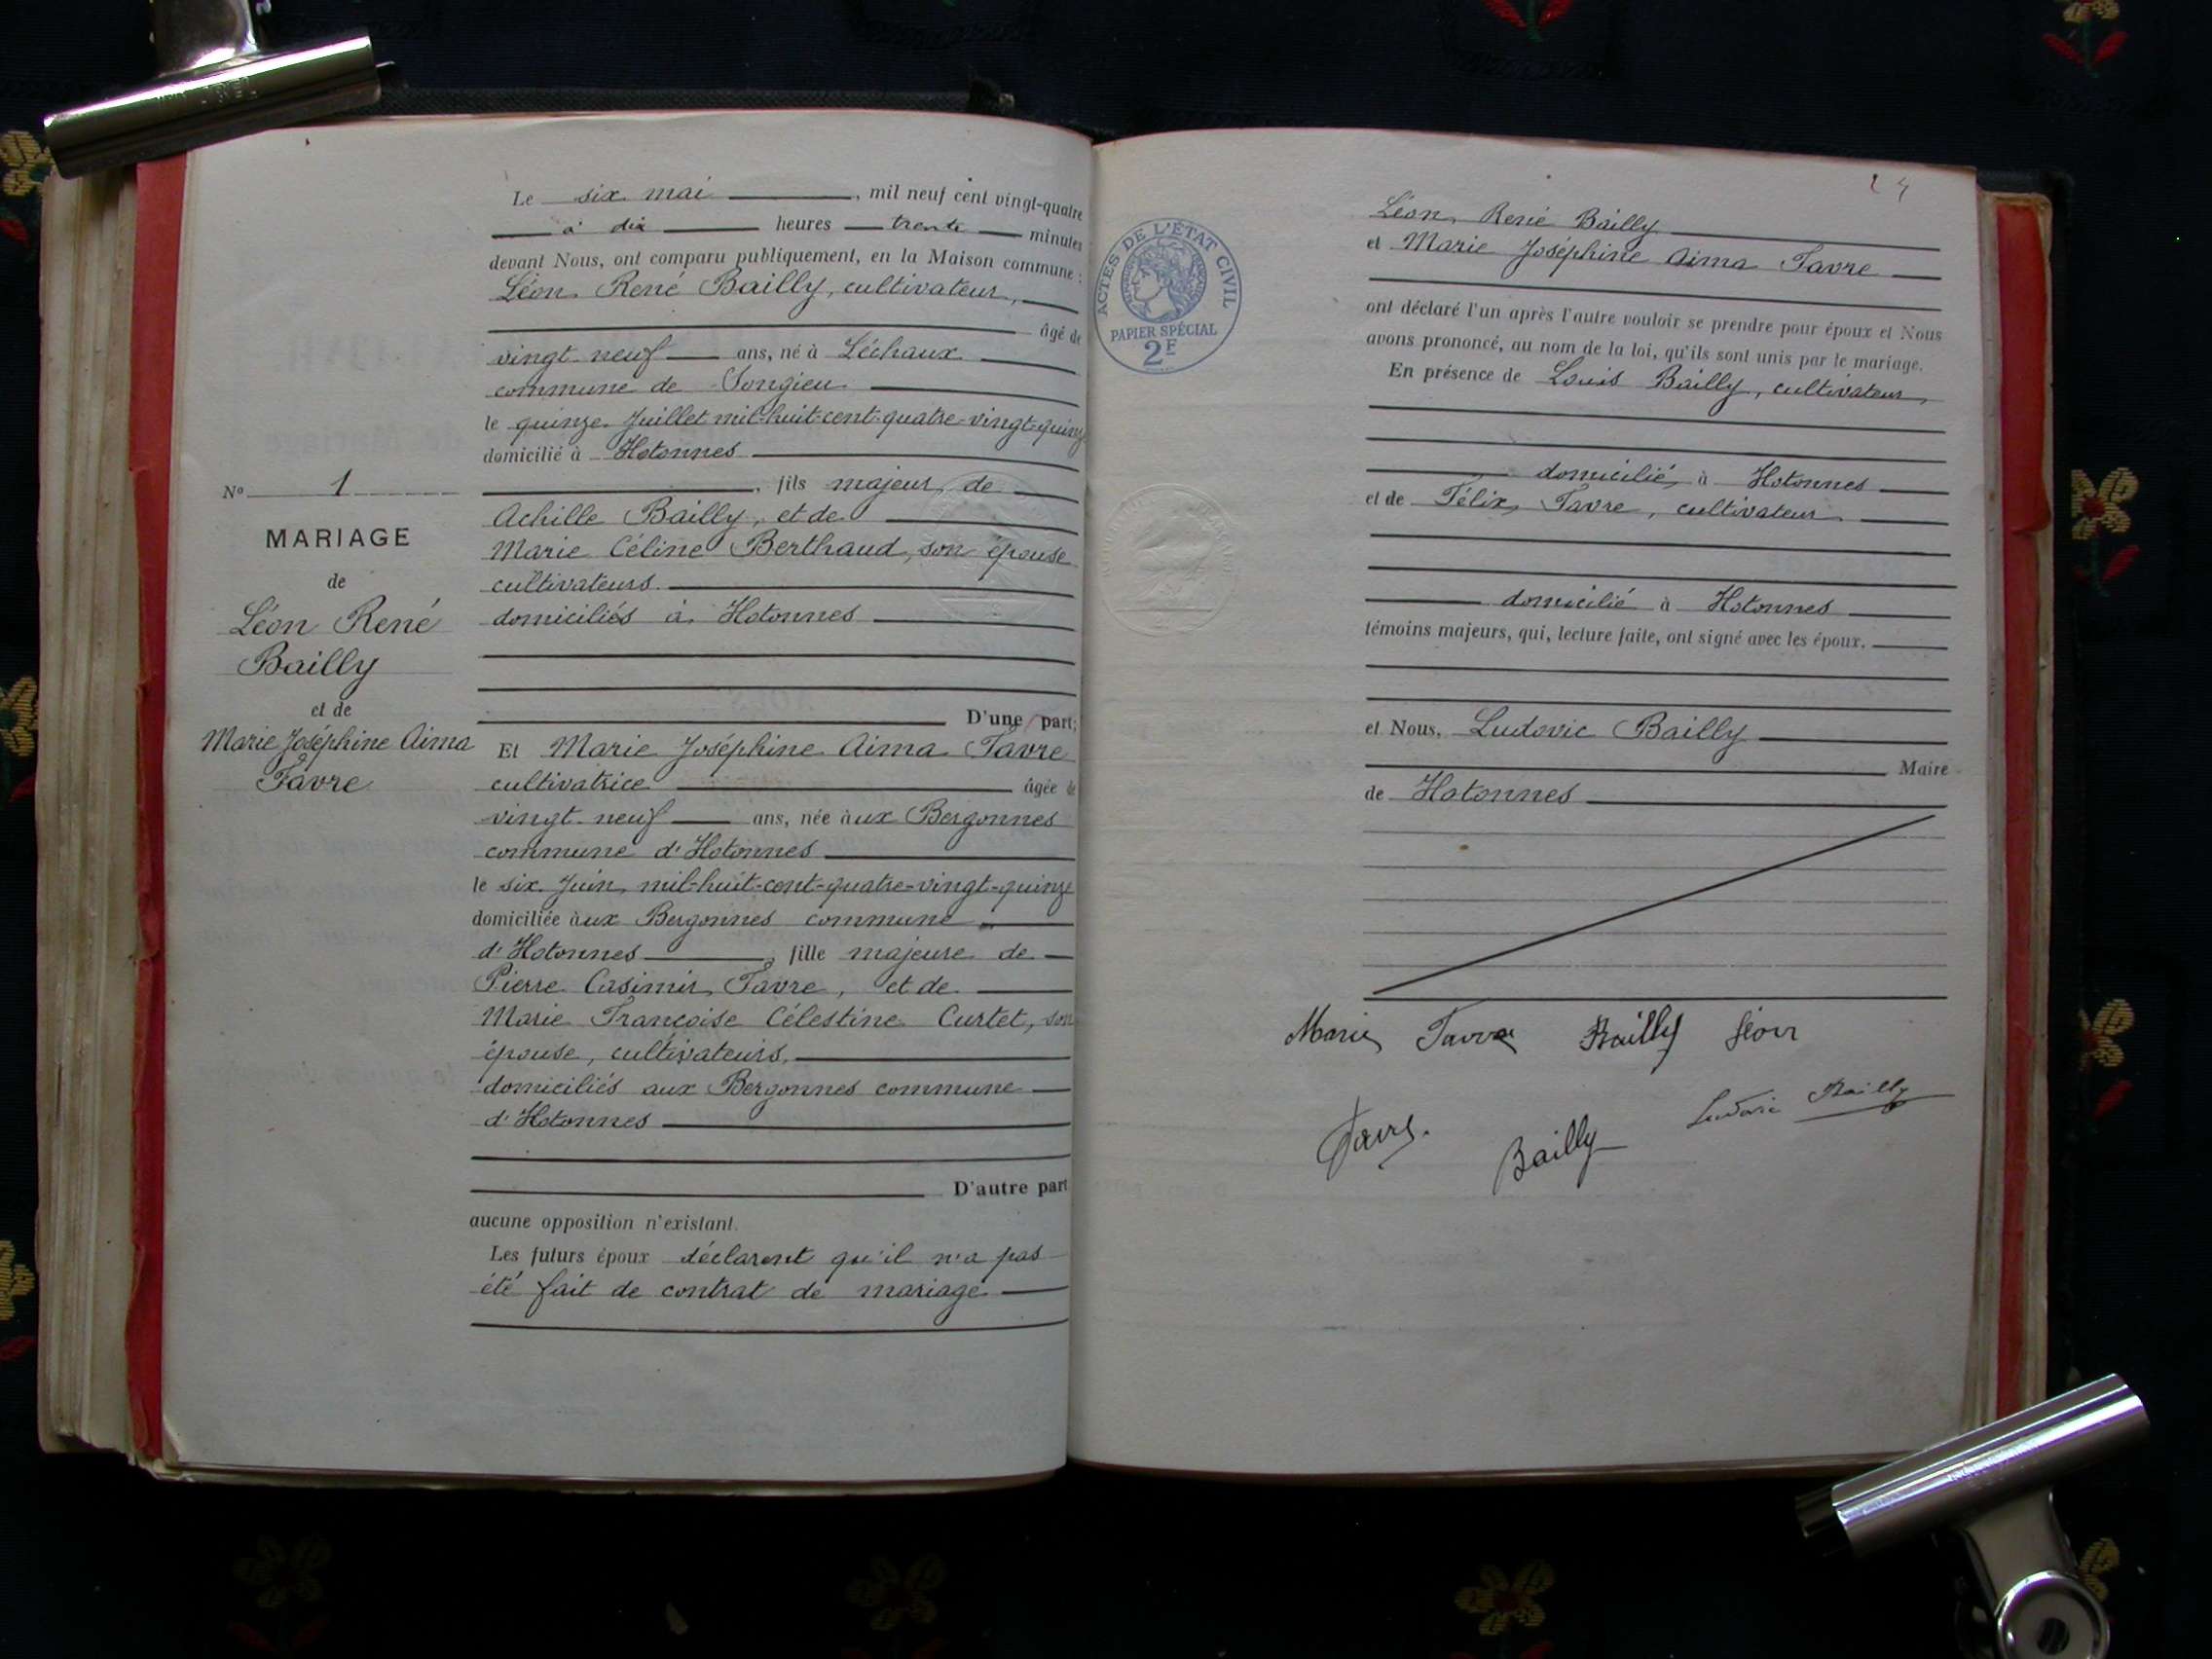 Le six mai, mil neuf cent vingt-quatre
à dix heures trente minutes
devant Nous, ont comparu publiquement, en la Maison commune :
Léon René Bailly, cultivateur,
âgé de
vingt-neuf ans, né à Léchaux
commune de Songieu
le quinze Juillet mil-huit-cent-quatre-vingt-quinze
domicilié à Hotonnes
, fils majeur de
Achille Bailly, et de
Marie Céline Berthaud, son épouse
cultivateurs.
domiciliés à Hotonnes
D'une part;
Et Marie Joséphine Aima Favre
cultivatrice âgée de
vingt-neuf ans, née àux Bergonnes
commune d'Hotonnes
le six Juin mil-huit-cent-quatre-vingt-quinze
domiciliée àux Bergonnes commune
d'Hotonnes, fille majeure de
Pierre Casimir Favre, et de
Marie Françoise Célestine Curtet, son
épouse, cultivateurs.
domiciliés aux Bergonnes commune
d'Hotonnes
D'autre part
aucune opposition n'existant.
Les futurs époux déclarent qu'il n'a pas
été fait de contrat de mariage
No 1
MARIAGE
de
Léon René
Bailly
et de
Marie Joséphine Aima
Favre
ACTES DE L'ÉTAT CIVIL
PAPIER SPÉCIAL
2F
24
Léon René Bailly
et Marie Joséphine Aima Favre
ont déclaré l'un après l'autre vouloir se prendre pour époux et Nous
avons prononcé, au nom de la loi, qu'ils sont unis par le mariage.
En présence de Louis Bailly, cultivateur,
domicilié à Hotonnes
et de Félix Favre, cultivateur
domicilié à Hotonnes
témoins majeurs, qui, lecture faite, ont signé avec les époux.
et Nous, Ludovic Bailly
Maire
de Hotonnes
Marie Favre Bailly Léon
Favre.
Bailly
Ludovic Bailly